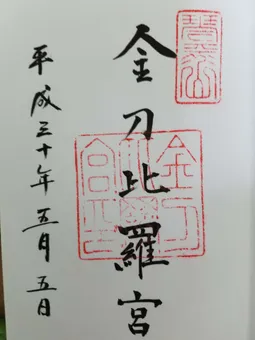 金刀比羅宮
平成三十年五月五日